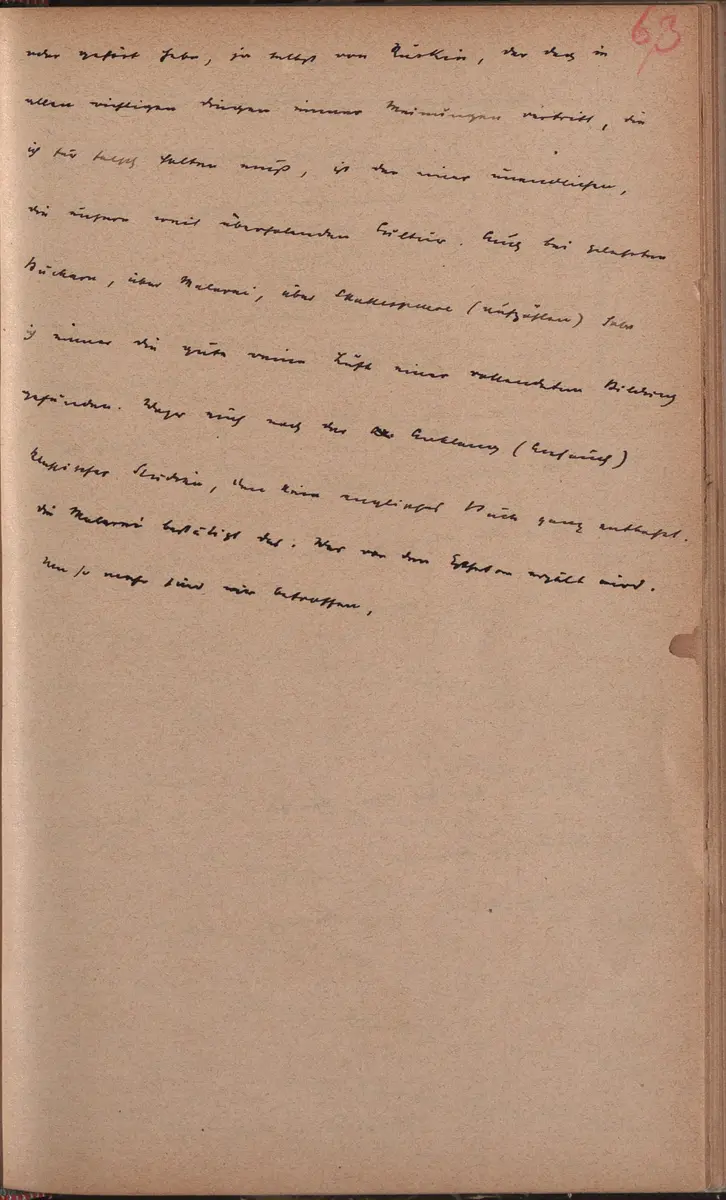 63
oder gehört habe, ja selbst von Ruskin, der doch in
allen wichtigen dingen immer Meinungen vertritt, die
ich für falsch halten muß, ist der einer unendlichen,
die unsere weit überholenden Cultur. Auch bei gelehrten
Büchern, über Malerei, über Shakespeare (aufzählen) habe
ich immer die gute reine Luft einer vollendeten Bildung
gefunden. auch noch der Anklang (Anhauch)
klassischer Studien, den kein englisches Buch ganz entbehrt.
die Malerei bestätigt das. Was von den Ästheten erzält wird.
Um so mehr sind wir betroffen,